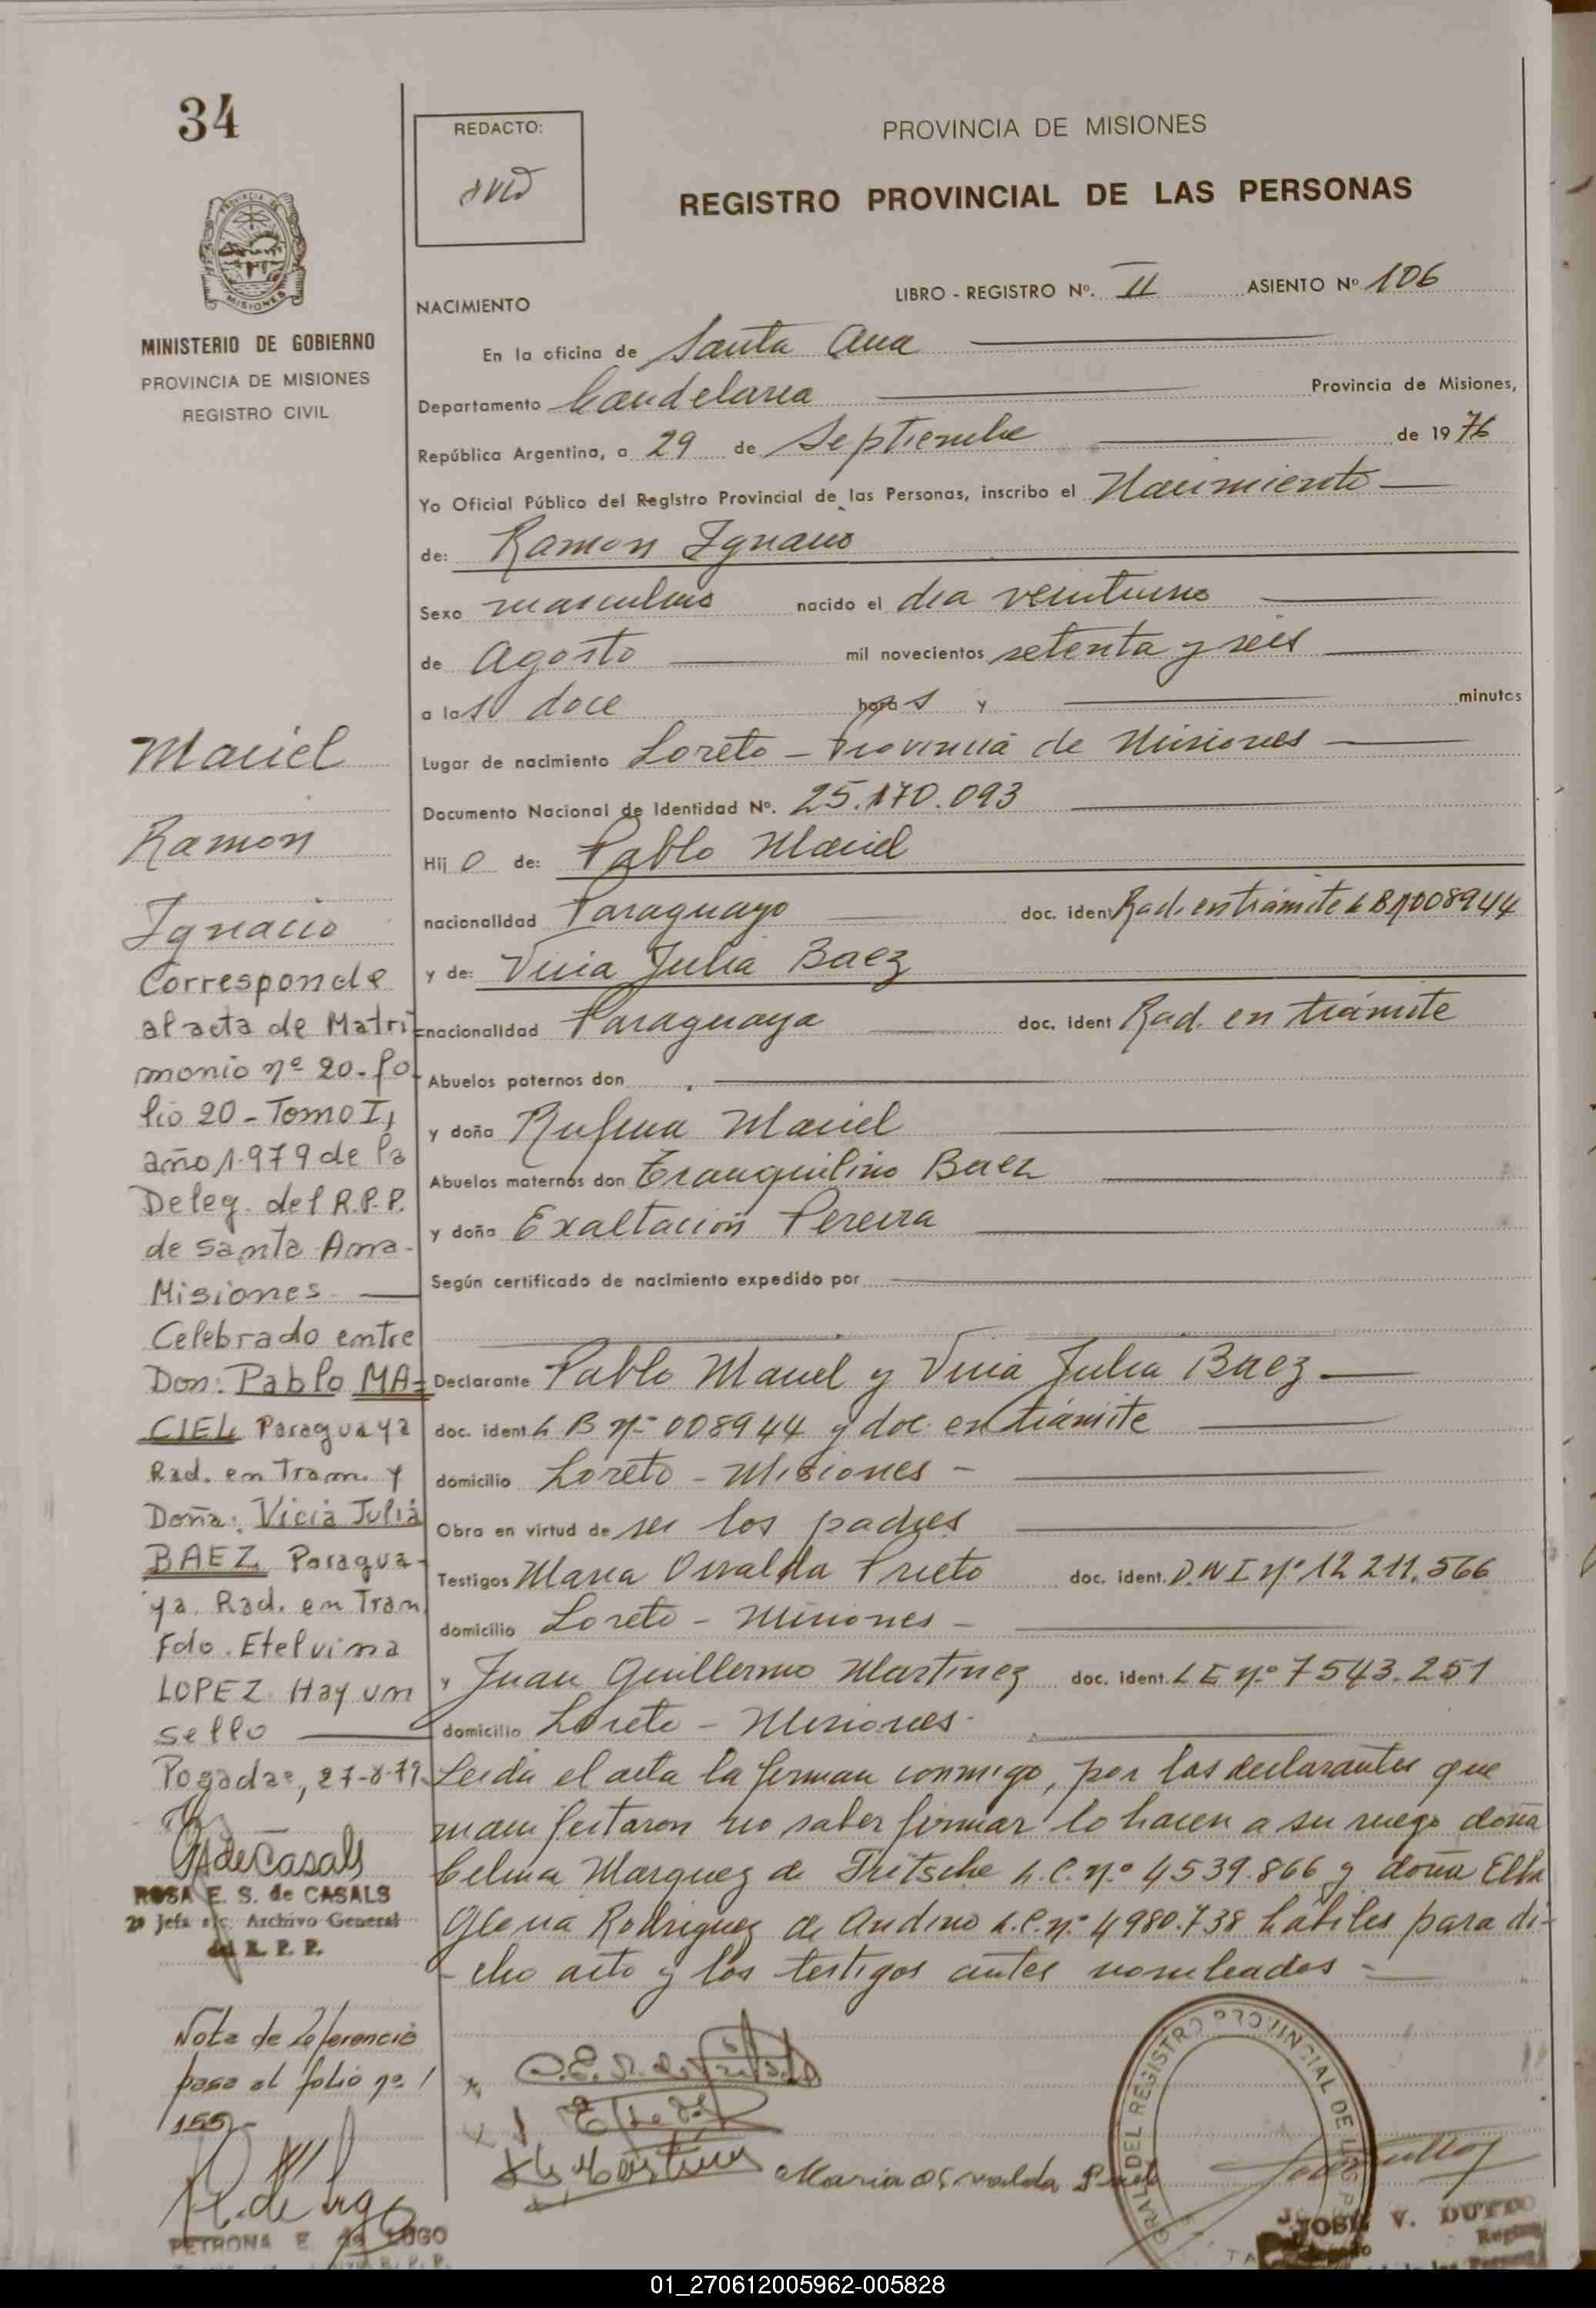 34
REDACTO:
PROVINCIA DE MISIONES
REGISTRO PROVINCIAL DE LAS PERSONAS
PROVINCIA DE
MISIONES
MINISTERIO DE GOBIERNO
PROVINCIA DE MISIONES
REGISTRO CIVIL
NACIMIENTO
LIBRO - REGISTRO Nº. II ASIENTO Nº 106
En la oficina de Santa Ana
Departamento Candelaria Provincia de Misiones,
República Argentina, a 29 de Septiembre de 1976
Yo Oficial Público del Registro Provincial de las Personas, inscribo el Nacimiento
de: Ramon Ignacio
Sexo masculino nacido el dia veintiuno
de Agosto mil novecientos setenta y seis
a las doce horas y minutos
Lugar de nacimiento Loreto - Provincia de Misiones
Documento Nacional de Identidad Nº. 25.170.093
Hijo de: Pablo Maciel
nacionalidad Paraguayo doc. ident Rad. en trámite L B Nº 008944
y de: Vicia Julia Baez
nacionalidad Paraguaya doc. ident Rad. en trámite
Abuelos paternos don
y doña Rufina Maciel
Abuelos maternos don Tranquilino Baez
y doña Exaltación Pereira
Según certificado de nacimiento expedido por
Declarante Pablo Maciel y Vicia Julia Baez
doc. ident. L B Nº 008944 y doc. en trámite
domicilio Loreto - Misiones -
Obra en virtud de ser los padres
Testigos Maria Osvalda Prieto doc. ident. D.N I Nº 12 211.566
domicilio Loreto - Misiones -
y Juan Guillermo Martinez doc. ident. L E nº 7543.251
domicilio Loreto - Misiones.
Leida el acta la firman conmigo, por los declarantes que
manifestaron no saber firmar lo hacen a su ruego doña
Celina Marquez de Fritsche L.C. nº 4539.866 y doña Elba
Gloria Rodriguez de Andino L.C. nº 4980.738 hábiles para di-
-cho acto y los testigos antes nombrados -
Maciel
Ramon
Ignacio
Corresponde
al acta de Matri-
monio nº 20 - fo-
lio 20 - Tomo I,
año 1.979 de la
Deleg. del R.P.P.
de Santa Ana -
Misiones
Celebrado entre
Don: Pablo MA=
CIEL Paraguaya
Rad. en Tram. y
Doña: Vicia Julia
BAEZ Paragua-
ya. Rad. en Tram
Fdo. Etelvina
LOPEZ. Hay un
sello
Posadas, 27-8-79.
ROSA E. S. de CASALS
2ª Jefa a/c. Archivo General
del R. P. P.
Nota de Referencia
pasa al folio nº
155-
PETRONA E. de LUGO
R. P. P.
Maria Osvalda Prieto
GRAL DEL REGISTRO PROVINCIAL DE LAS P
JOSE V. DUTTO
01_270612005962-005828